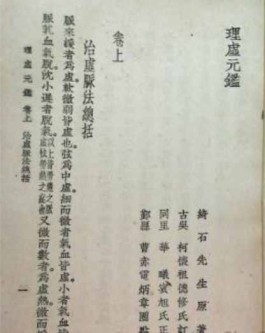 理虛元鑑
綺石先生原
古吳 柯懷祖德修氏訂
華 旭氏正
鄞縣 曹赤電炳章圈點
卷上
治虛脈法總括
脈來緩者為虛軟微弱皆虛也弦為中虛細而微者氣血皆虛小者氣血
脈沈小遲者脫氣 又微而數者為虛熱微而
理虛元鑑 卷上 治虛脈法總括 一